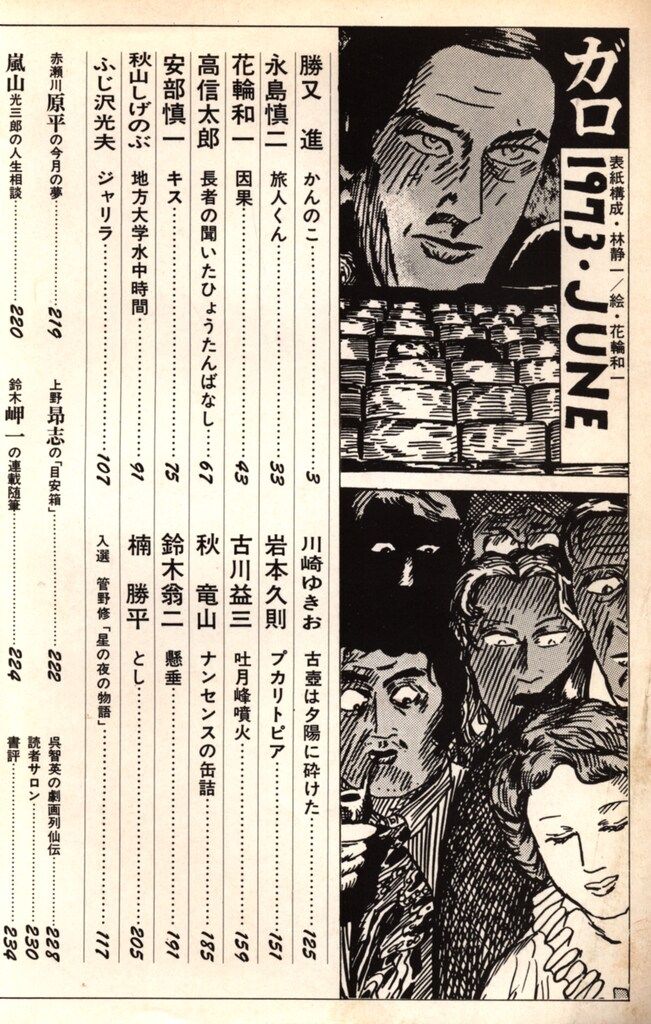 ガロ
1973・JUNE
表紙構成・林静一／絵・花輪和一
勝又 進 かんのこ 3
永島慎二 旅人くん 33
花輪和一 因果 43
高信太郎 長者の聞いたひょうたんばなし 67
安部慎一 キス 75
秋山しげのぶ 地方大学水中時間 91
ふじ沢光夫 ジャリラ 107
川崎ゆきお 古壺は夕陽に砕けた 125
岩本久則 プカリトピア 151
古川益三 吐月峰噴火 159
秋 竜山 ナンセンスの缶詰 185
鈴木翁二 懸垂 191
楠 勝平 とし 205
入選 管野修「星の夜の物語」 117
赤瀬川原平の今月の夢 219
嵐山光三郎の人生相談 220
上野昂志の「目安箱」 222
鈴木岬一の連載随筆 224
呉智英の劇画列仙伝 228
読者サロン 230
書評 234